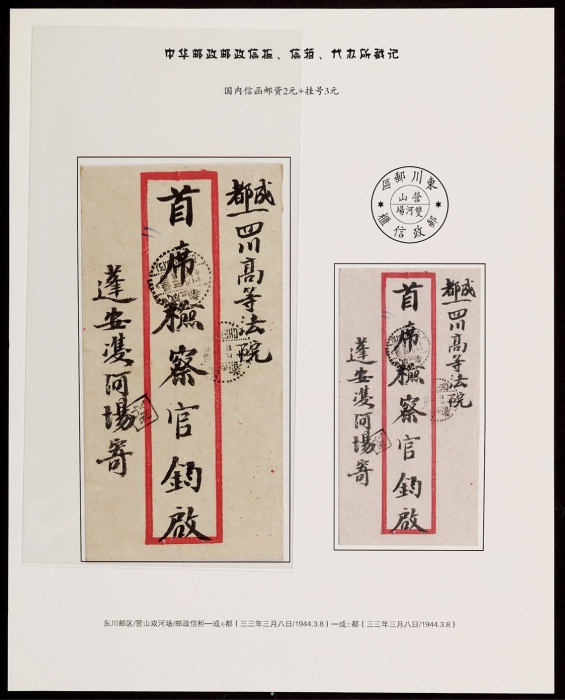 中华邮政邮政信柜、信箱、代办所戳记
国内信函邮资2元+挂号3元
成都
四川高等法院
首席檢察官鈞啟
蓬安雙河場寄
東川郵區
營山
雙河場
郵政信櫃
成都
四川高等法院
首席檢察官鈞啟
蓬安雙河場寄
东川邮区/营山双河场/邮政信柜—成 都(三三年三月八日/1944.3.8)—成 都(三三年三月八日/1944.3.8)